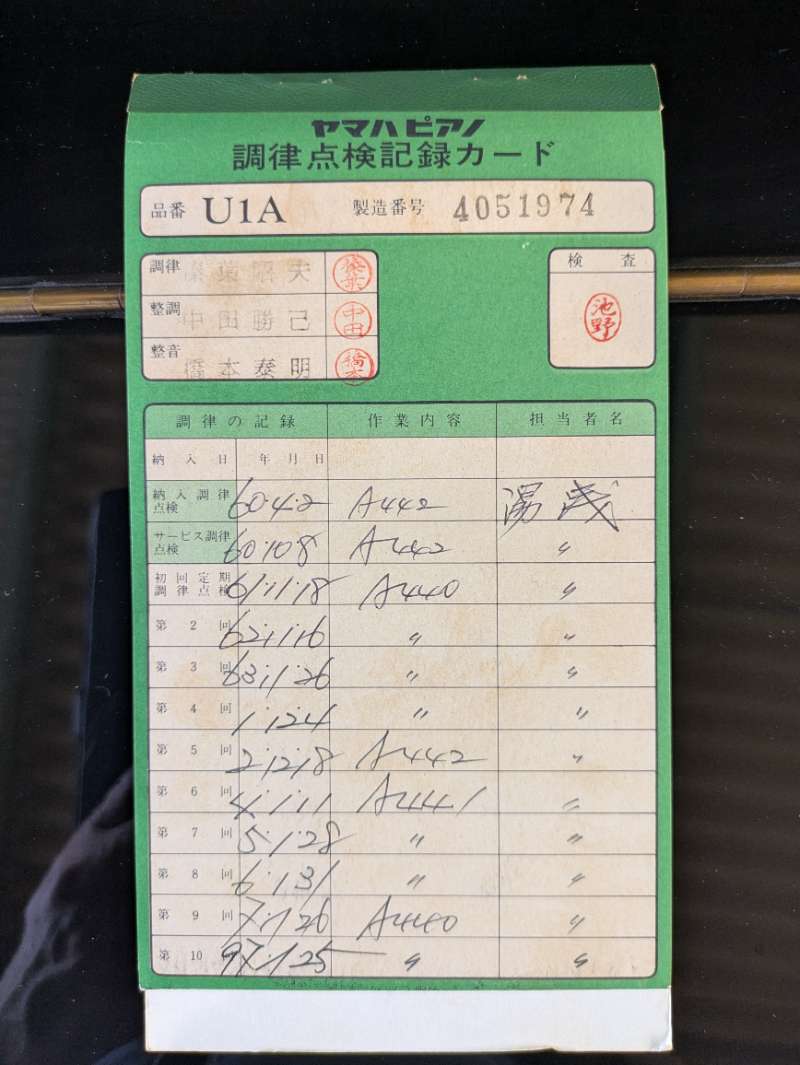 ヤマハピアノ
調律点検記録カード
品番 U1A 製造番号 4051974
調律 夫
整調 中田勝己 中田
整音 橋本泰明 橋本
検査
池野
調律の記録 作業内容 担当者名
納入日 年月日
納入調律点検 60.4.2 A442 湯浅
サービス調律点検 60.10.8 A442 〃
初回定期調律点検 61.11.18 A440 〃
第2回 62.1.16 〃 〃
第3回 63.1.26 〃 〃
第4回 1.1.24 〃 〃
第5回 2.12.18 A442 〃
第6回 4.1.11 A441 〃
第7回 5.1.28 〃 〃
第8回 6.1.31 〃 〃
第9回 7.1.26 A440 〃
第10回 97.1.25 〃 〃